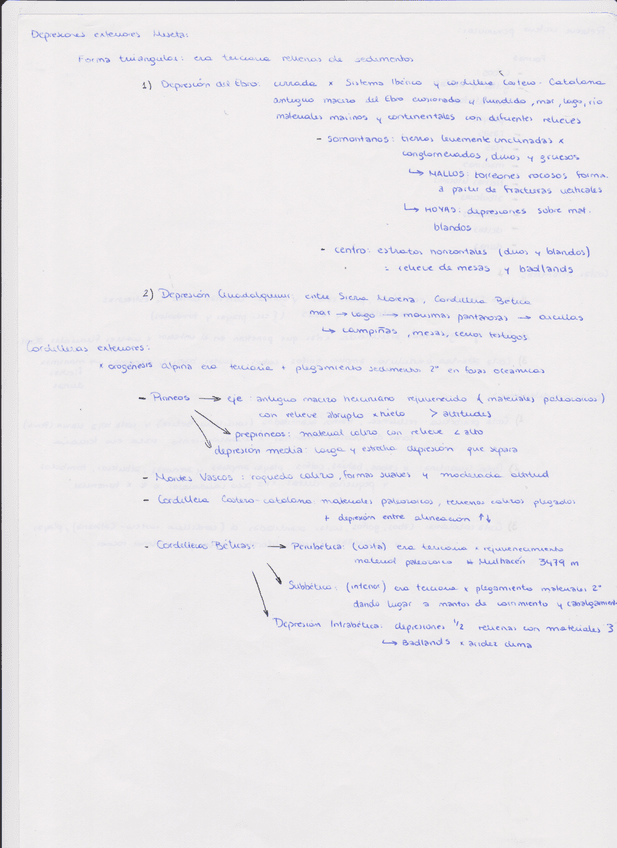 Depresiones exteriores Meseta:
Forma triangulares: era terciaria rellenas de sedimentos
1) Depresión del Ebro: cerrada x Sistema Ibérico y cordillera Costero-Catalana
antiguo macizo del Ebro erosionado y hundido, mar, lago, río
materiales marinos y continentales con diferentes relieves
- somontanos: tierras levemente inclinadas x
conglomerados, duros y gruesos
↳ MALLOS: torreones rocosos forma.
a partir de fracturas verticales
↳ HOYAS: depresiones sobre mat.
blandos
- centro: estratos horizontales (duros y blandos)
: relieve de mesas y badlands
2) Depresión Guadalquivir: entre Sierra Morena, Cordillera Bética
mar → lago → marismas pantanosas → arcillas
↳ campiñas, mesas, cerros testigos
Cordilleras exteriores:
x orogénesis alpina era terciaria + plegamiento sedimentos 2º en fosas oceánicas
- Pirineos → eje: antiguo macizo herciniano rejuvenecido (materiales paleozoicos)
con relieve abrupto x hielo > altitudes
prepirineos: material calizo con relieve < alto
depresión media: larga y estrecha depresión que separa
- Montes Vascos: roquedo calizo, formas suaves y moderada altitud
- Cordillera Costero-catalana: materiales paleozoicos, terrenos calizos plegados
+ depresión entre alineación ↑↓
- Cordilleras Béticas: → Penibética: (costa) era terciaria x rejuvenecimiento
material paleozoico * Mulhacén 3479 m
Subbética: (interior) era terciaria x plegamiento materiales 2º
dando lugar a mantos de corrimiento y cabalgamiento
Depresión Intrabética: depresiones 1/2 rellenas con materiales 3
↳ Badlands x aridez clima